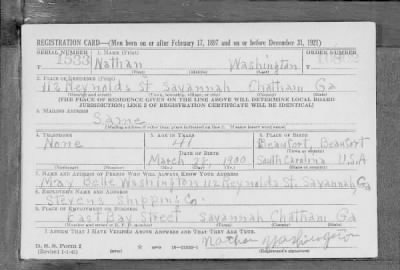 REGISTRATION CARD—(Men born on or after February 17, 1897 and on or before December 31, 1921)
SERIAL NUMBER 1. NAME (Print) ORDER NUMBER
T 1533 Nathan Washington
(First) (Middle) (Last)
2. PLACE OF RESIDENCE (Print)
112 Reynolds St Savannah Chatham Ga
(Number and street) (Town, township, village, or city) (County) (State)
[THE PLACE OF RESIDENCE GIVEN ON THE LINE ABOVE WILL DETERMINE LOCAL BOARD
JURISDICTION; LINE 2 OF REGISTRATION CERTIFICATE WILL BE IDENTICAL]
3. MAILING ADDRESS
Same
[Mailing address if other than place indicated on line 2. If same insert word same]
4. TELEPHONE 5. AGE IN YEARS 6. PLACE OF BIRTH
None 41 Beaufort Beaufort
DATE OF BIRTH (Town or county)
March 1900 South Carolina U.S.A
(Exchange) (Number) (Mo.) (Day) (Yr.) (State or country)
7. NAME AND ADDRESS OF PERSON WHO WILL ALWAYS KNOW YOUR ADDRESS
May Belle Washington 112 Reynolds St. Savannah Ga
8. EMPLOYER'S NAME AND ADDRESS
Stevens Shipping Co.
9. PLACE OF EMPLOYMENT OR BUSINESS
East Bay Street Savannah Chatham Ga
(Number and street or R. F. D. number) (Town) (County) (State)
I AFFIRM THAT I HAVE VERIFIED ABOVE ANSWERS AND THAT THEY ARE TRUE.
D. S. S. Form 1
(Revised 1-1-42) (over) Nathan Washington
(Registrant's signature)